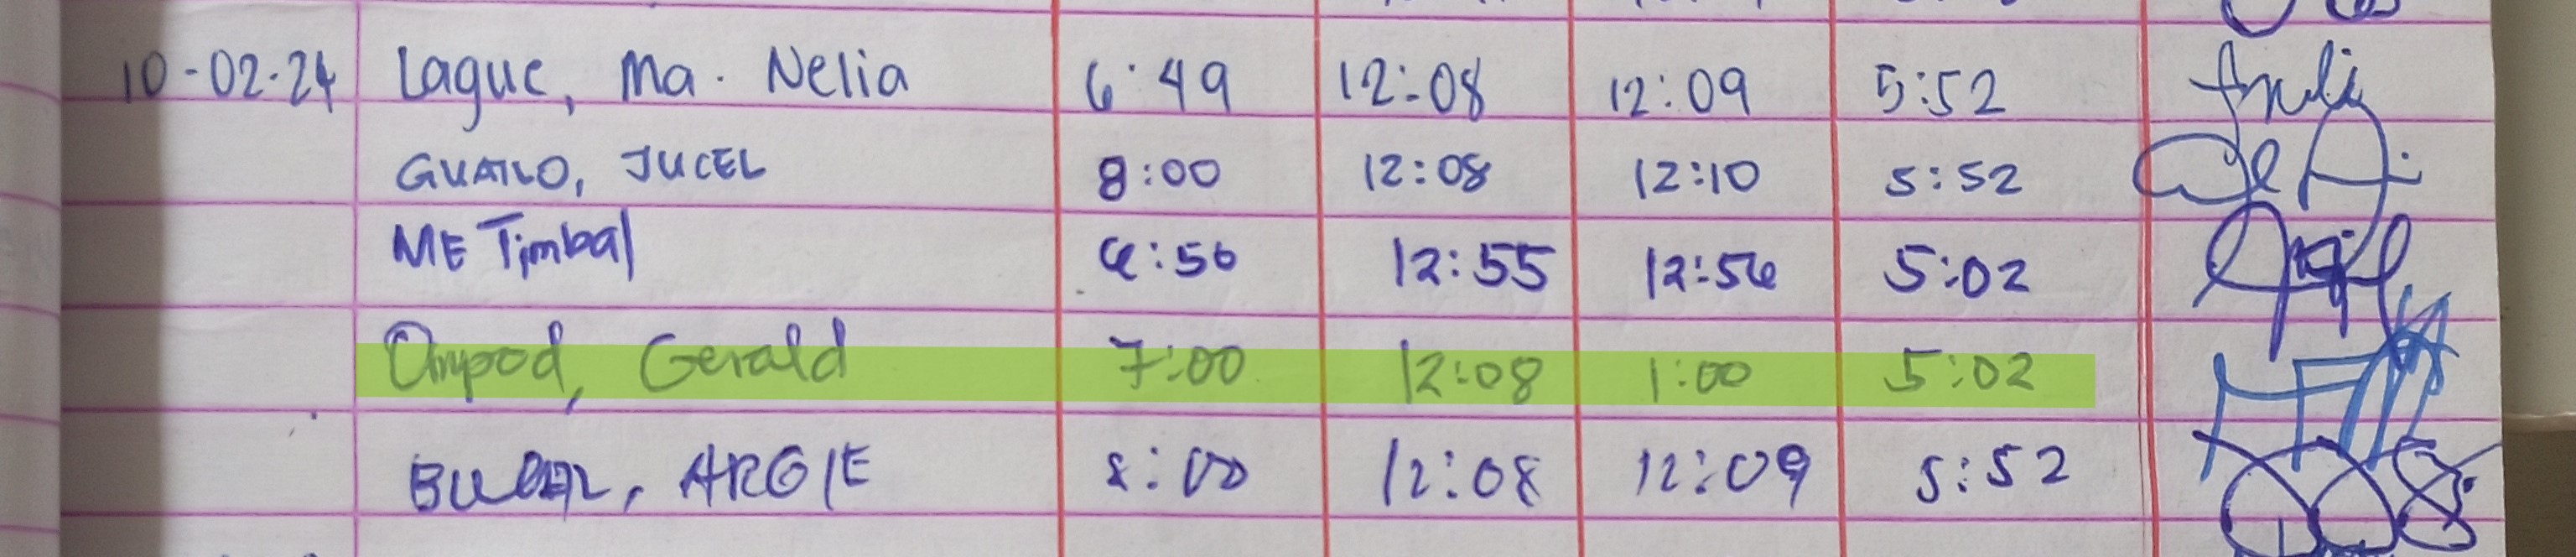 10-02-24 Lague, Ma. Nelia 6:49 12:08 12:09 5:52
JUCEL 8:00 12:08 12:10 5:52
ME Timbal 6:56 12:55 12:56 5:02
Ompod, Gerald 7:00 12:08 1:00 5:02
ARGIE 8:00 12:08 12:09 5:52